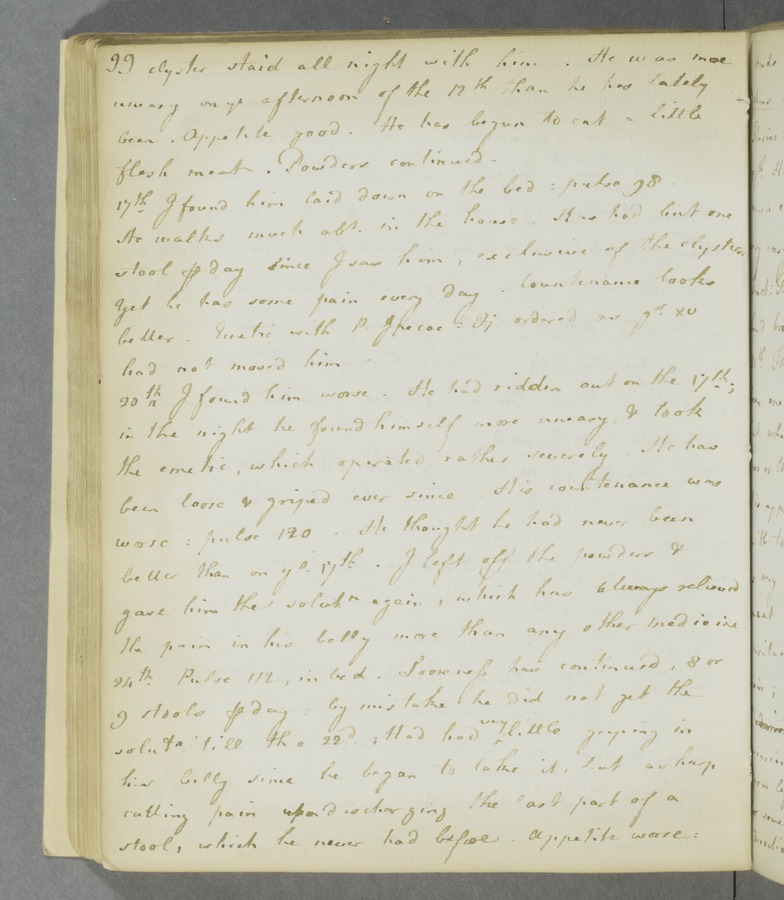 99 clyster staid all night with him . He was moe
uneasy on ye afternoon of the 12th than he has lately
been . Appetite good . He has begun to eat a little
flesh meat . Powders continued .
17th I found him laid down on the bed : pulse 98
He walks much abt. in the house . He has had but one
stool ⅌ day since I saw him , exclusive of the clyster.
Yet he has some pain every day . Countenance looks
better . Emetic with P. Ipecac : ordered as xv
had not moved him
20th I found him worse . He had ridden out on the 17th ;
in the night he found himself more uneasy , & took
the emetic , which operated rather severely . He has
been loose & griped ever since . His countenance was
worse : pulse 120 . He thought he had never been
better than on ye. 17th . I left off the powders &
gave him the solutn again , which has always relieved
the pain in his belly more than any other medicine
24th Pulse 112 , in bed . Looseness has continued , 8 or
9 stools ⅌ day : by mistake he did not get the
solutn till the 22d ; Had had very little griping in
his belly since he began to take it , but a sharp
cutting pain upon discharging the last part of a
stool , which he never had before . Appetite worse :